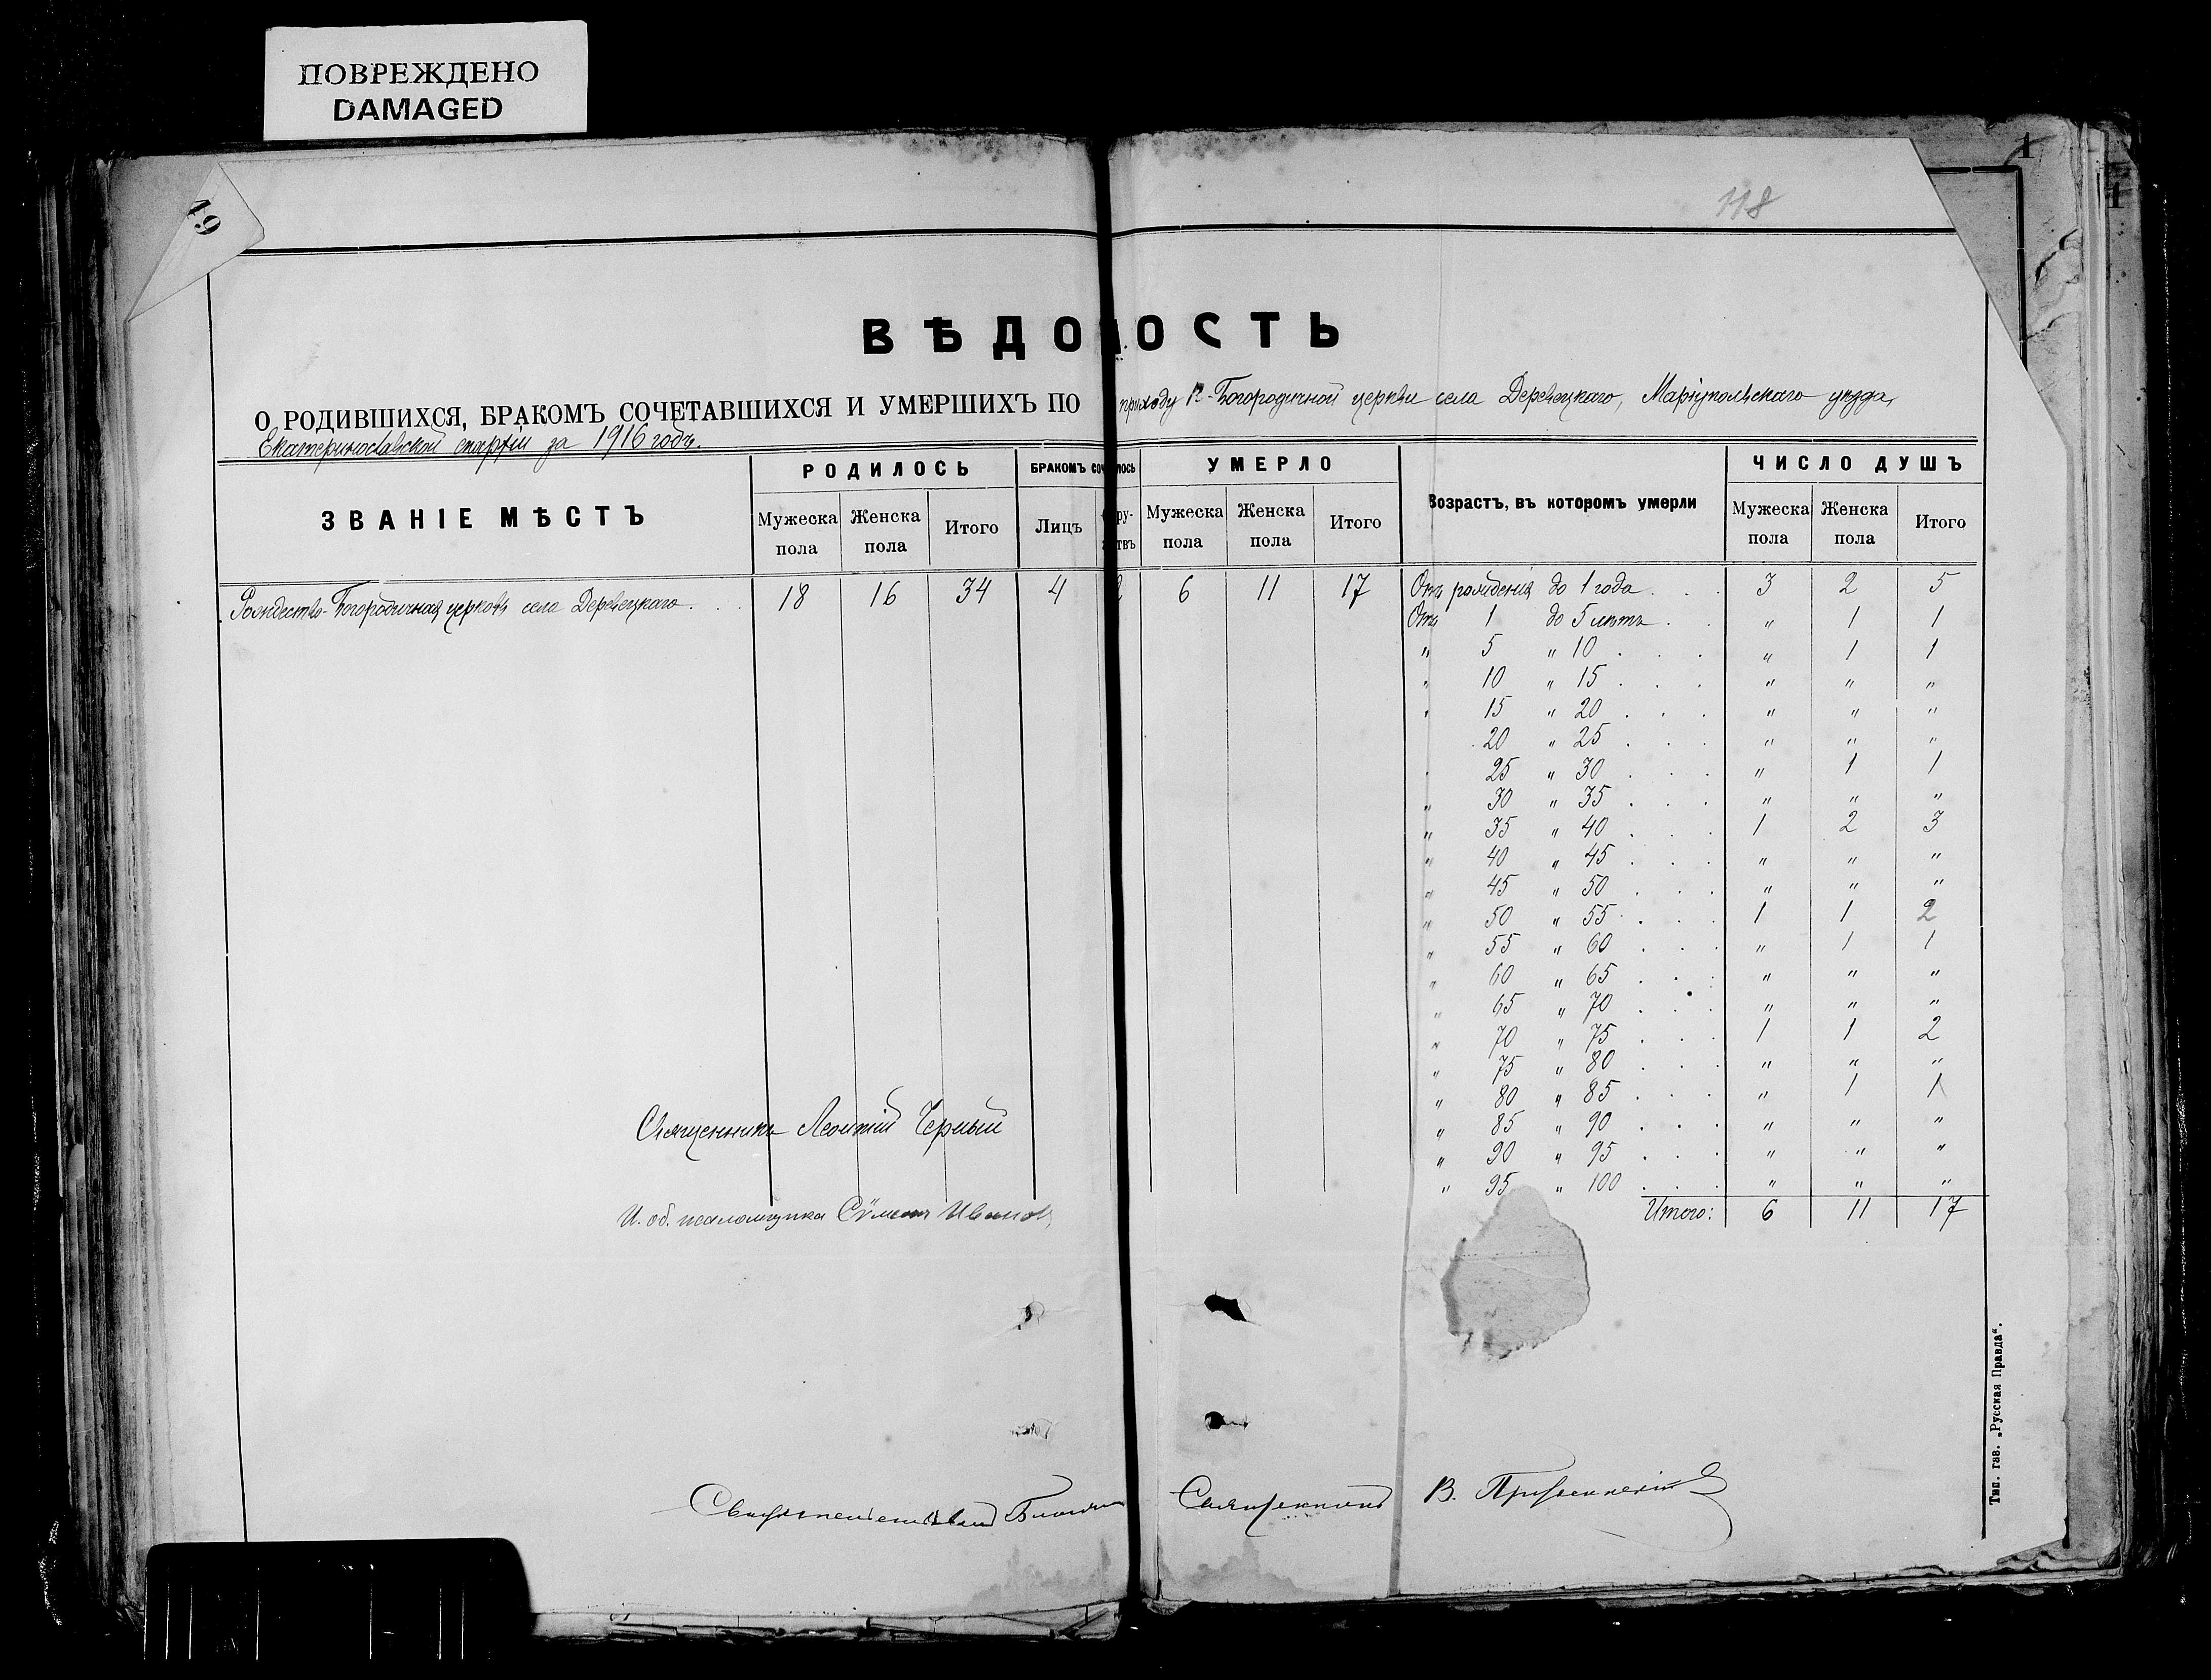 ПОВРЕЖДЕНО
DAMAGED
19
1
1
118
ВѢДОМОСТЬ
О РОДИВШИХСЯ, БРАКОМЪ СОЧЕТАВШИХСЯ И УМЕРШИХЪ ПО приходу Р.-Богородичной церкви села Деревецкаго, Маріупольскаго уѣзда,
Екатеринославской епархіи за 1916 годъ.
ЗВАНІЕ МѢСТЪ РОДИЛОСЬ БРАКОМЪ СОЧ лось УМЕРЛО Возрастъ, въ которомъ умерли ЧИСЛО ДУШЪ
Мужеска пола Женска пола Итого Лицъ ру- твъ Мужеска пола Женска пола Итого Мужеска пола Женска пола Итого
Рождество-Богородичная церковь села Деревецкаго . . 18 16 34 4 2 6 11 17 Отъ рожденія до 1 года . . . 3 2 5
Отъ 1 до 5 лѣтъ . . „ 1 1
„ 5 „ 10 . . . „ 1 1
„ 10 „ 15 . . . „ „ „
„ 15 „ 20 . . . „ „ „
20 „ 25 . . . „ „ „
25 „ 30 . . . „ 1 1
„ 30 „ 35 . . . „ „ „
„ 35 „ 40 . . . 1 2 3
„ 40 „ 45 . . . „ „ „
„ 45 „ 50 . . . „ „ „
„ 50 „ 55 . . . 1 1 2
„ 55 „ 60 . . . „ 1 1
„ 60 „ 65 . . . „ „ „
„ 65 „ 70 . . . „ „ „
„ 70 „ 75 . . . 1 1 2
„ 75 „ 80 . . . „ „ „
„ 80 „ 85 . . . „ 1 1
„ 85 „ 90 . . . „ „ „
„ 90 „ 95 . . . „ „ „
„ 95 „ 100 . . . „ „ „
Итого: 6 11 17
Священникъ Леонтій Черный
И. об. псаломщика Сѵмеонъ Ивановъ
Священникъ В.
Тип. газ. „Русская Правда“.